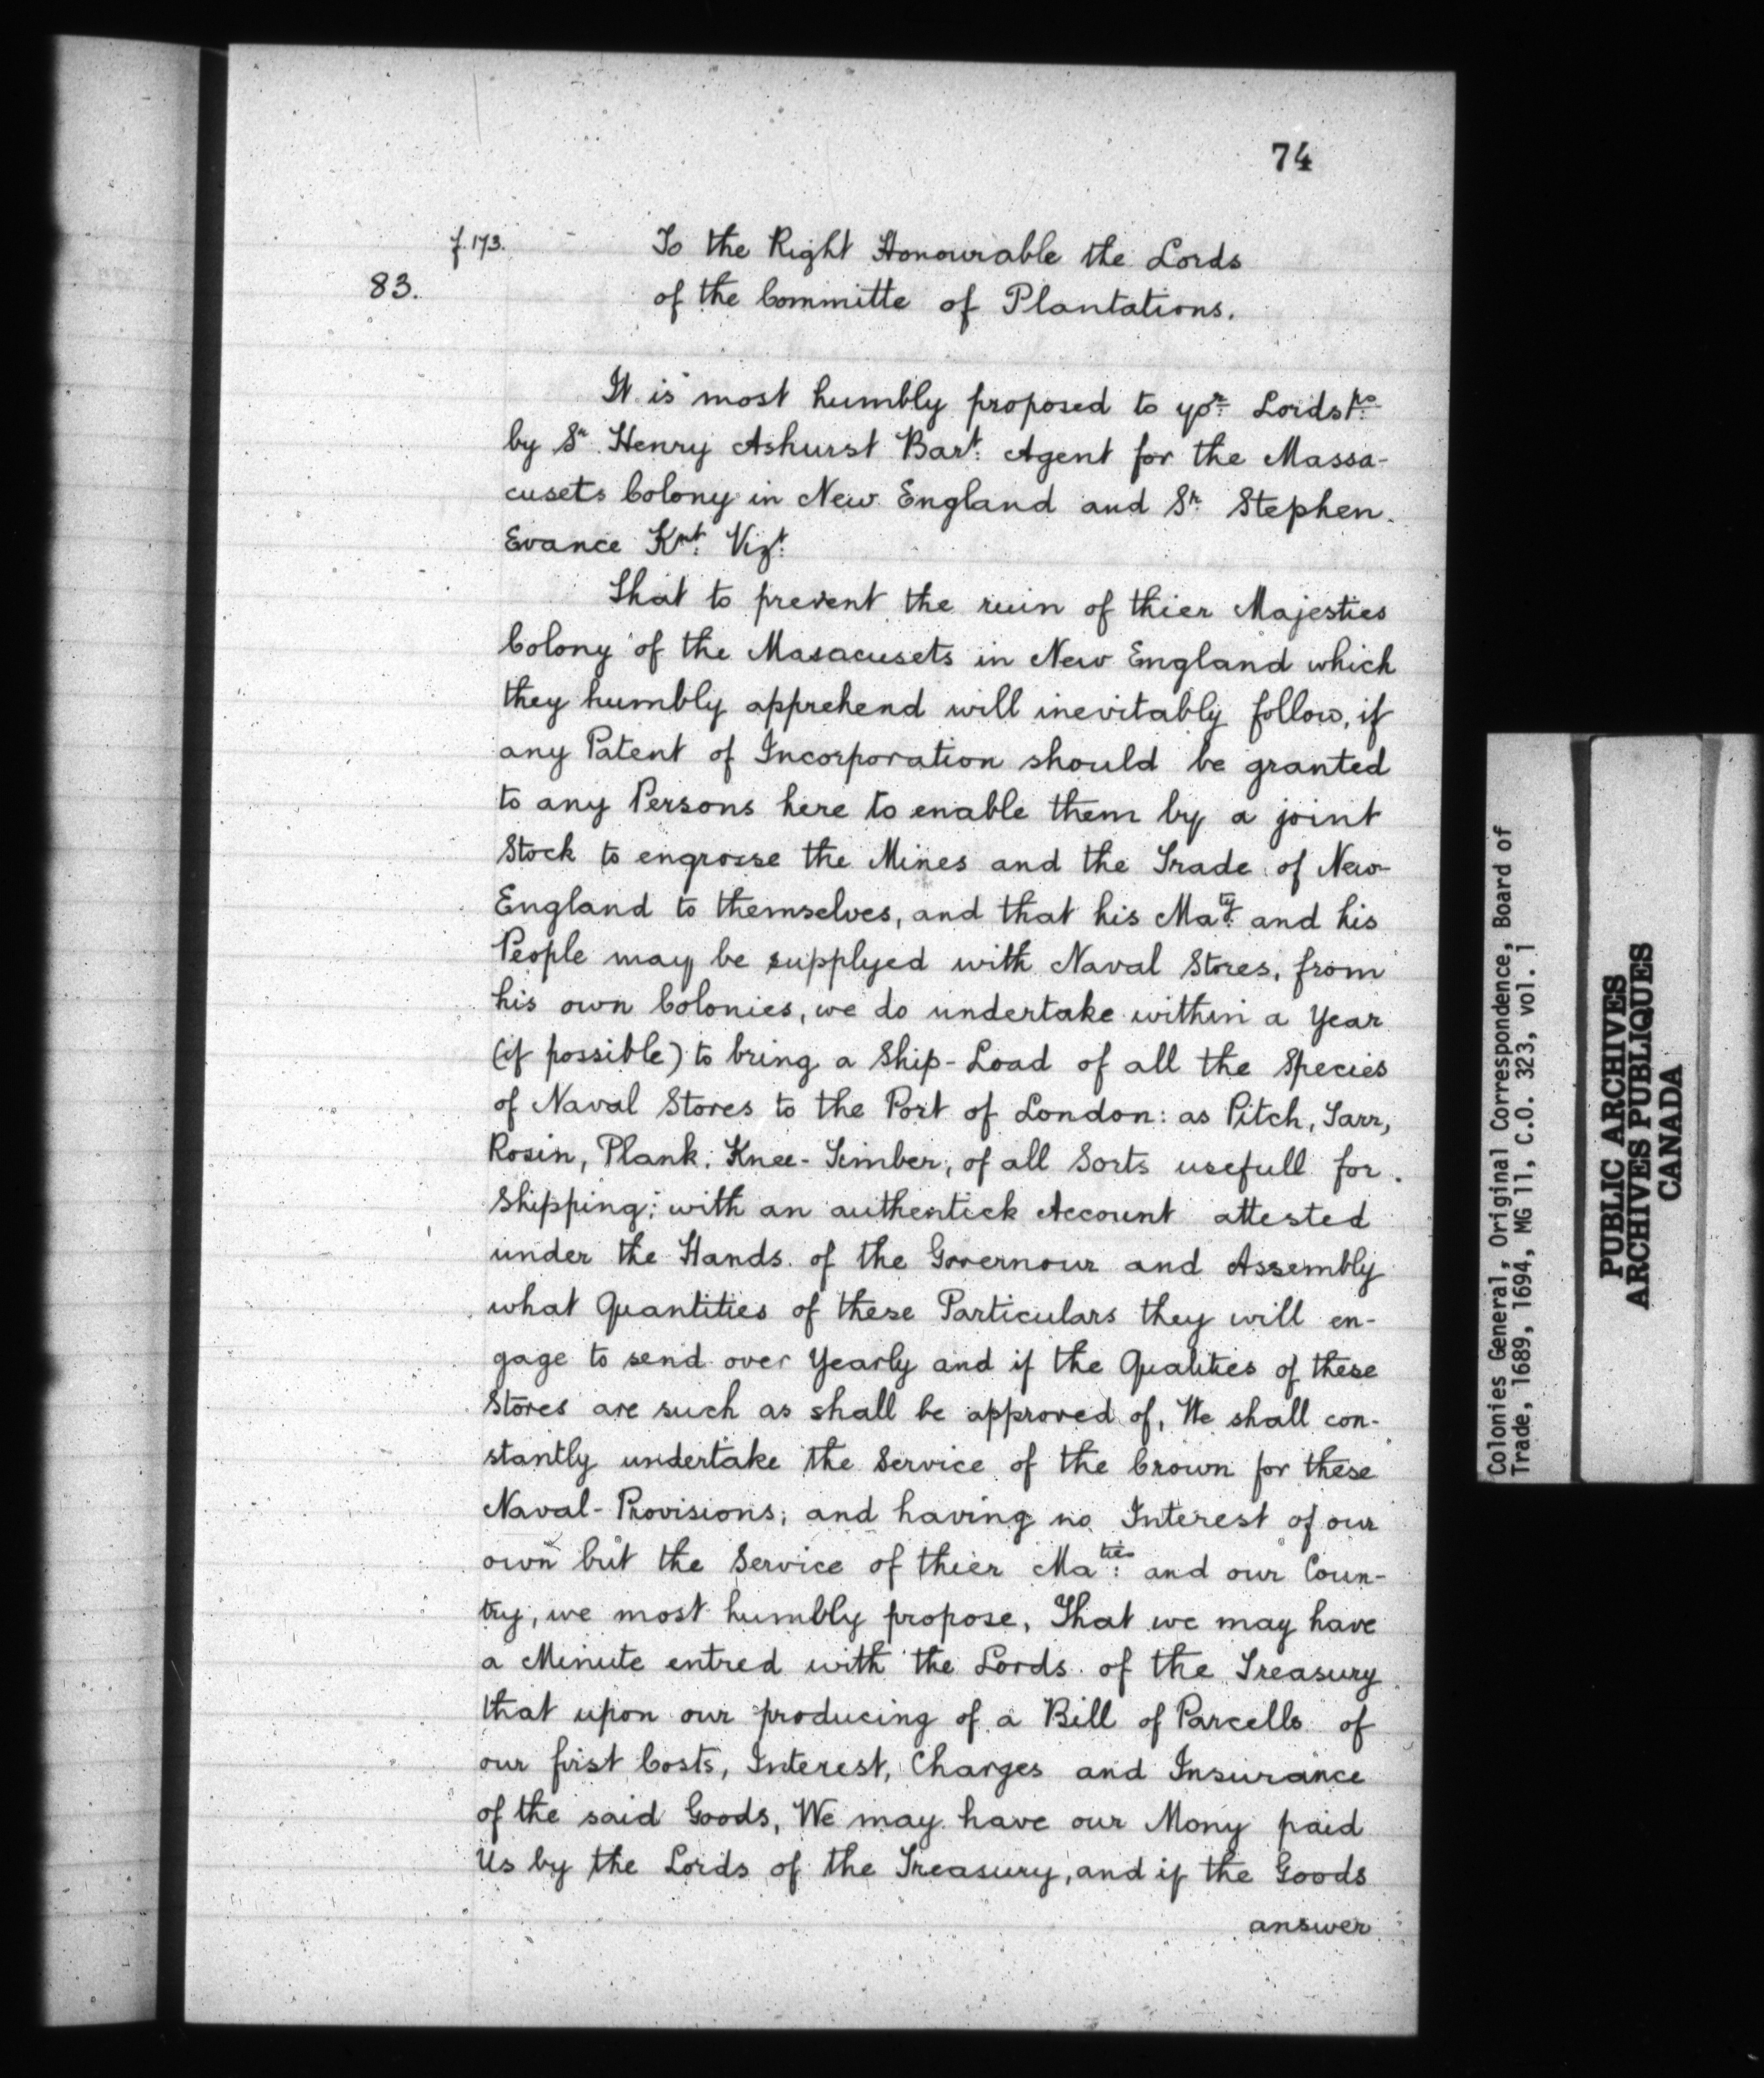 74
f. 173.
To the Right Honourable the Lords
83.
of the Committe of Plantations.
It is most humbly proposed to yor. Lordsps.
by Sr. Henry Ashurst Bart: Agent for the Massa-
cusets Colony in New England and Sr. Stephen
Evance Knt. Vizt.
That to prevent the ruin of thier Majesties
Colony of the Masacusets in New England which
they humbly apprehend will inevitably follow, if
any Patent of Incorporation should be granted
to any Persons here to enable them by a joint
Stock to engrosse the Mines and the Trade of New-
England to themselves, and that his Maty. and his
People may be supplyed with Naval Stores, from
his own Colonies, we do undertake within a Year
(if possible) to bring a Ship-Load of all the Species
of Naval Stores to the Port of London: as Pitch, Tarr,
Rosin, Plank, Knee-Timber, of all Sorts usefull for
Shipping; with an authentick Account attested
under the Hands of the Governour and Assembly
what Quantities of these Particulars they will en-
gage to send over Yearly and if the Qualities of these
Stores are such as shall be approved of, We shall con-
stantly undertake the Service of the Crown for these
Naval-Provisions; and having no Interest of our
own but the Service of thier Maties: and our Coun-
try, we most humbly propose, That we may have
a Minute entred with the Lords of the Treasury
that upon our producing of a Bill of Parcells of
our first Costs, Interest, Charges and Insurance
of the said Goods, We may have our Mony paid
Us by the Lords of the Treasury, and if the Goods
answer
Colonies General, Original Correspondence, Board of
Trade, 1689, 1694, MG 11, C.O. 323, vol. 1
PUBLIC ARCHIVES
ARCHIVES PUBLIQUES
CANADA